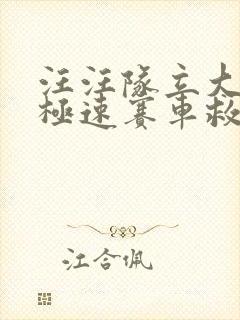 汪汪隊立大
極速賽車救
江合佩